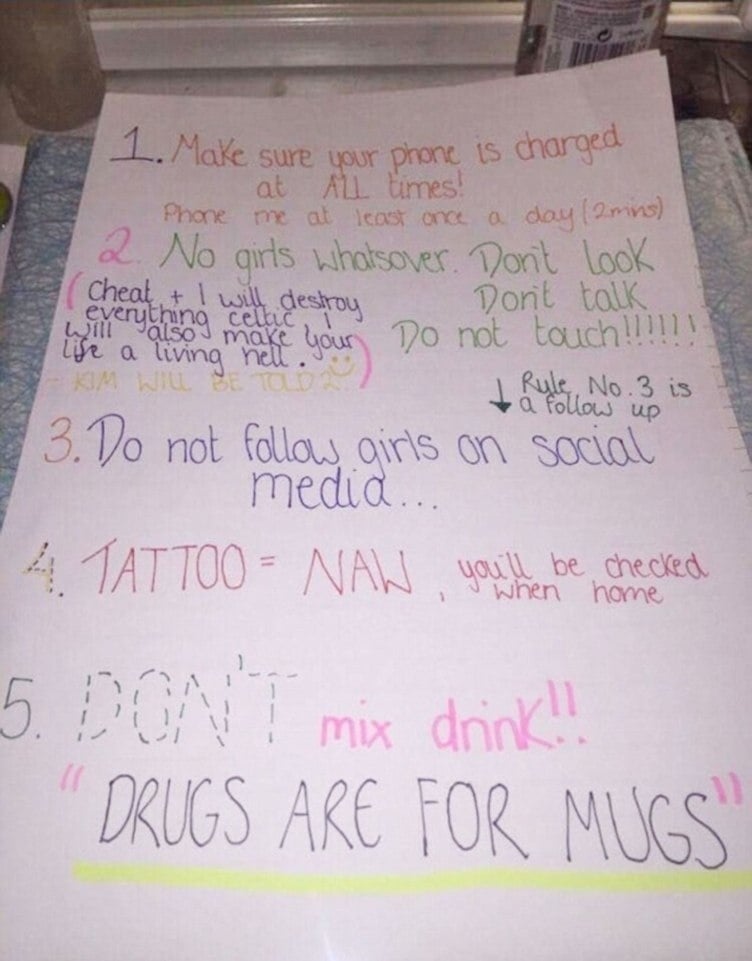 1. Make sure your phone is charged
at ALL times!
Phone me at least once a day (2mins)
2. No girls whatsover. Don't look
Don't talk
Do not touch!!!!!!
(Cheat + I will destroy
everything celtic, I
will also make your
life a living hell. )
- KIM WILL BE TOLD
↓ Rule No. 3 is
a follow up
3. Do not follow girls on social
media...
4. TATTOO = NAW, you'll be checked
when home
5. DON'T mix drink!!
"DRUGS ARE FOR MUGS"